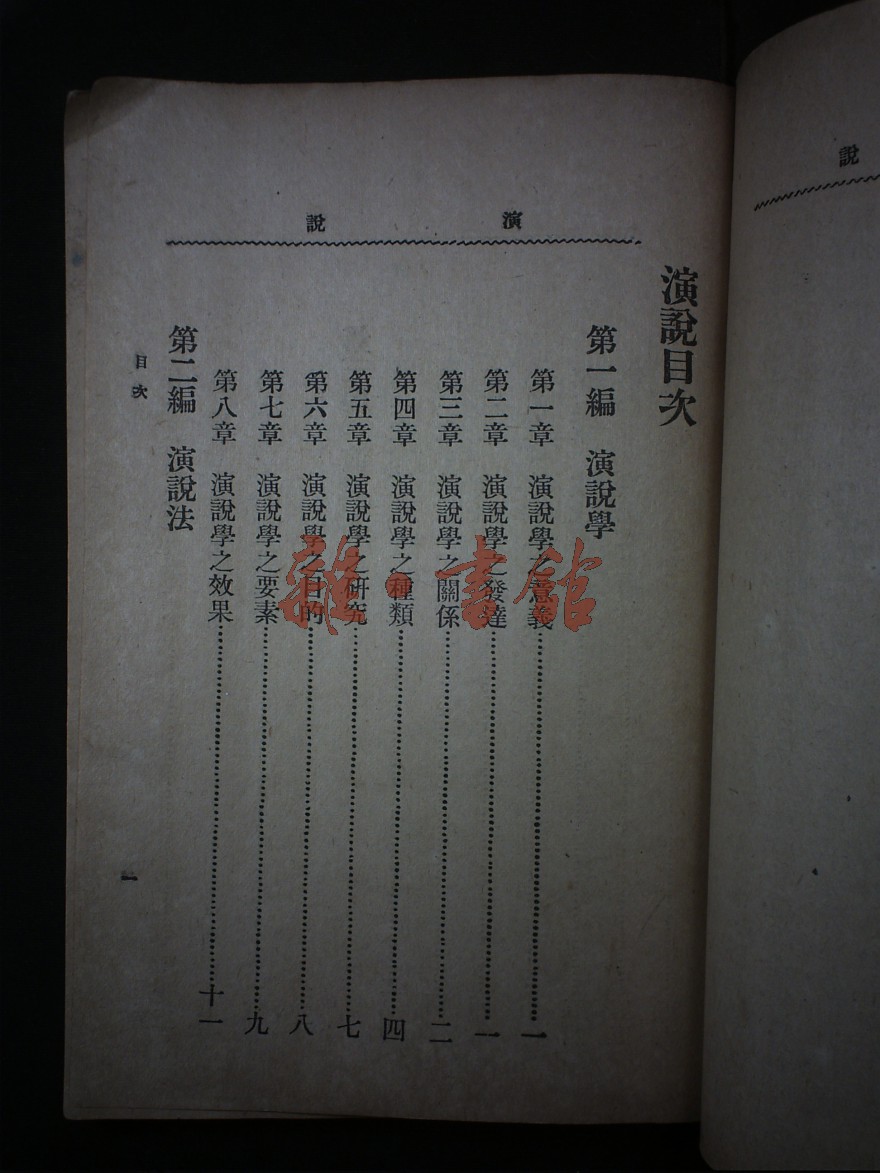 演說
演說目次
第一編 演說學
第一章 演說學之意義……一
第二章 演說學之發達……一
第三章 演說學之關係……二
第四章 演說學之種類……四
第五章 演說學之研究……七
第六章 演說學之目的……八
第七章 演說學之要素……九
第八章 演說學之效果……十一
第二編 演說法
目次
一
說
雜·書館